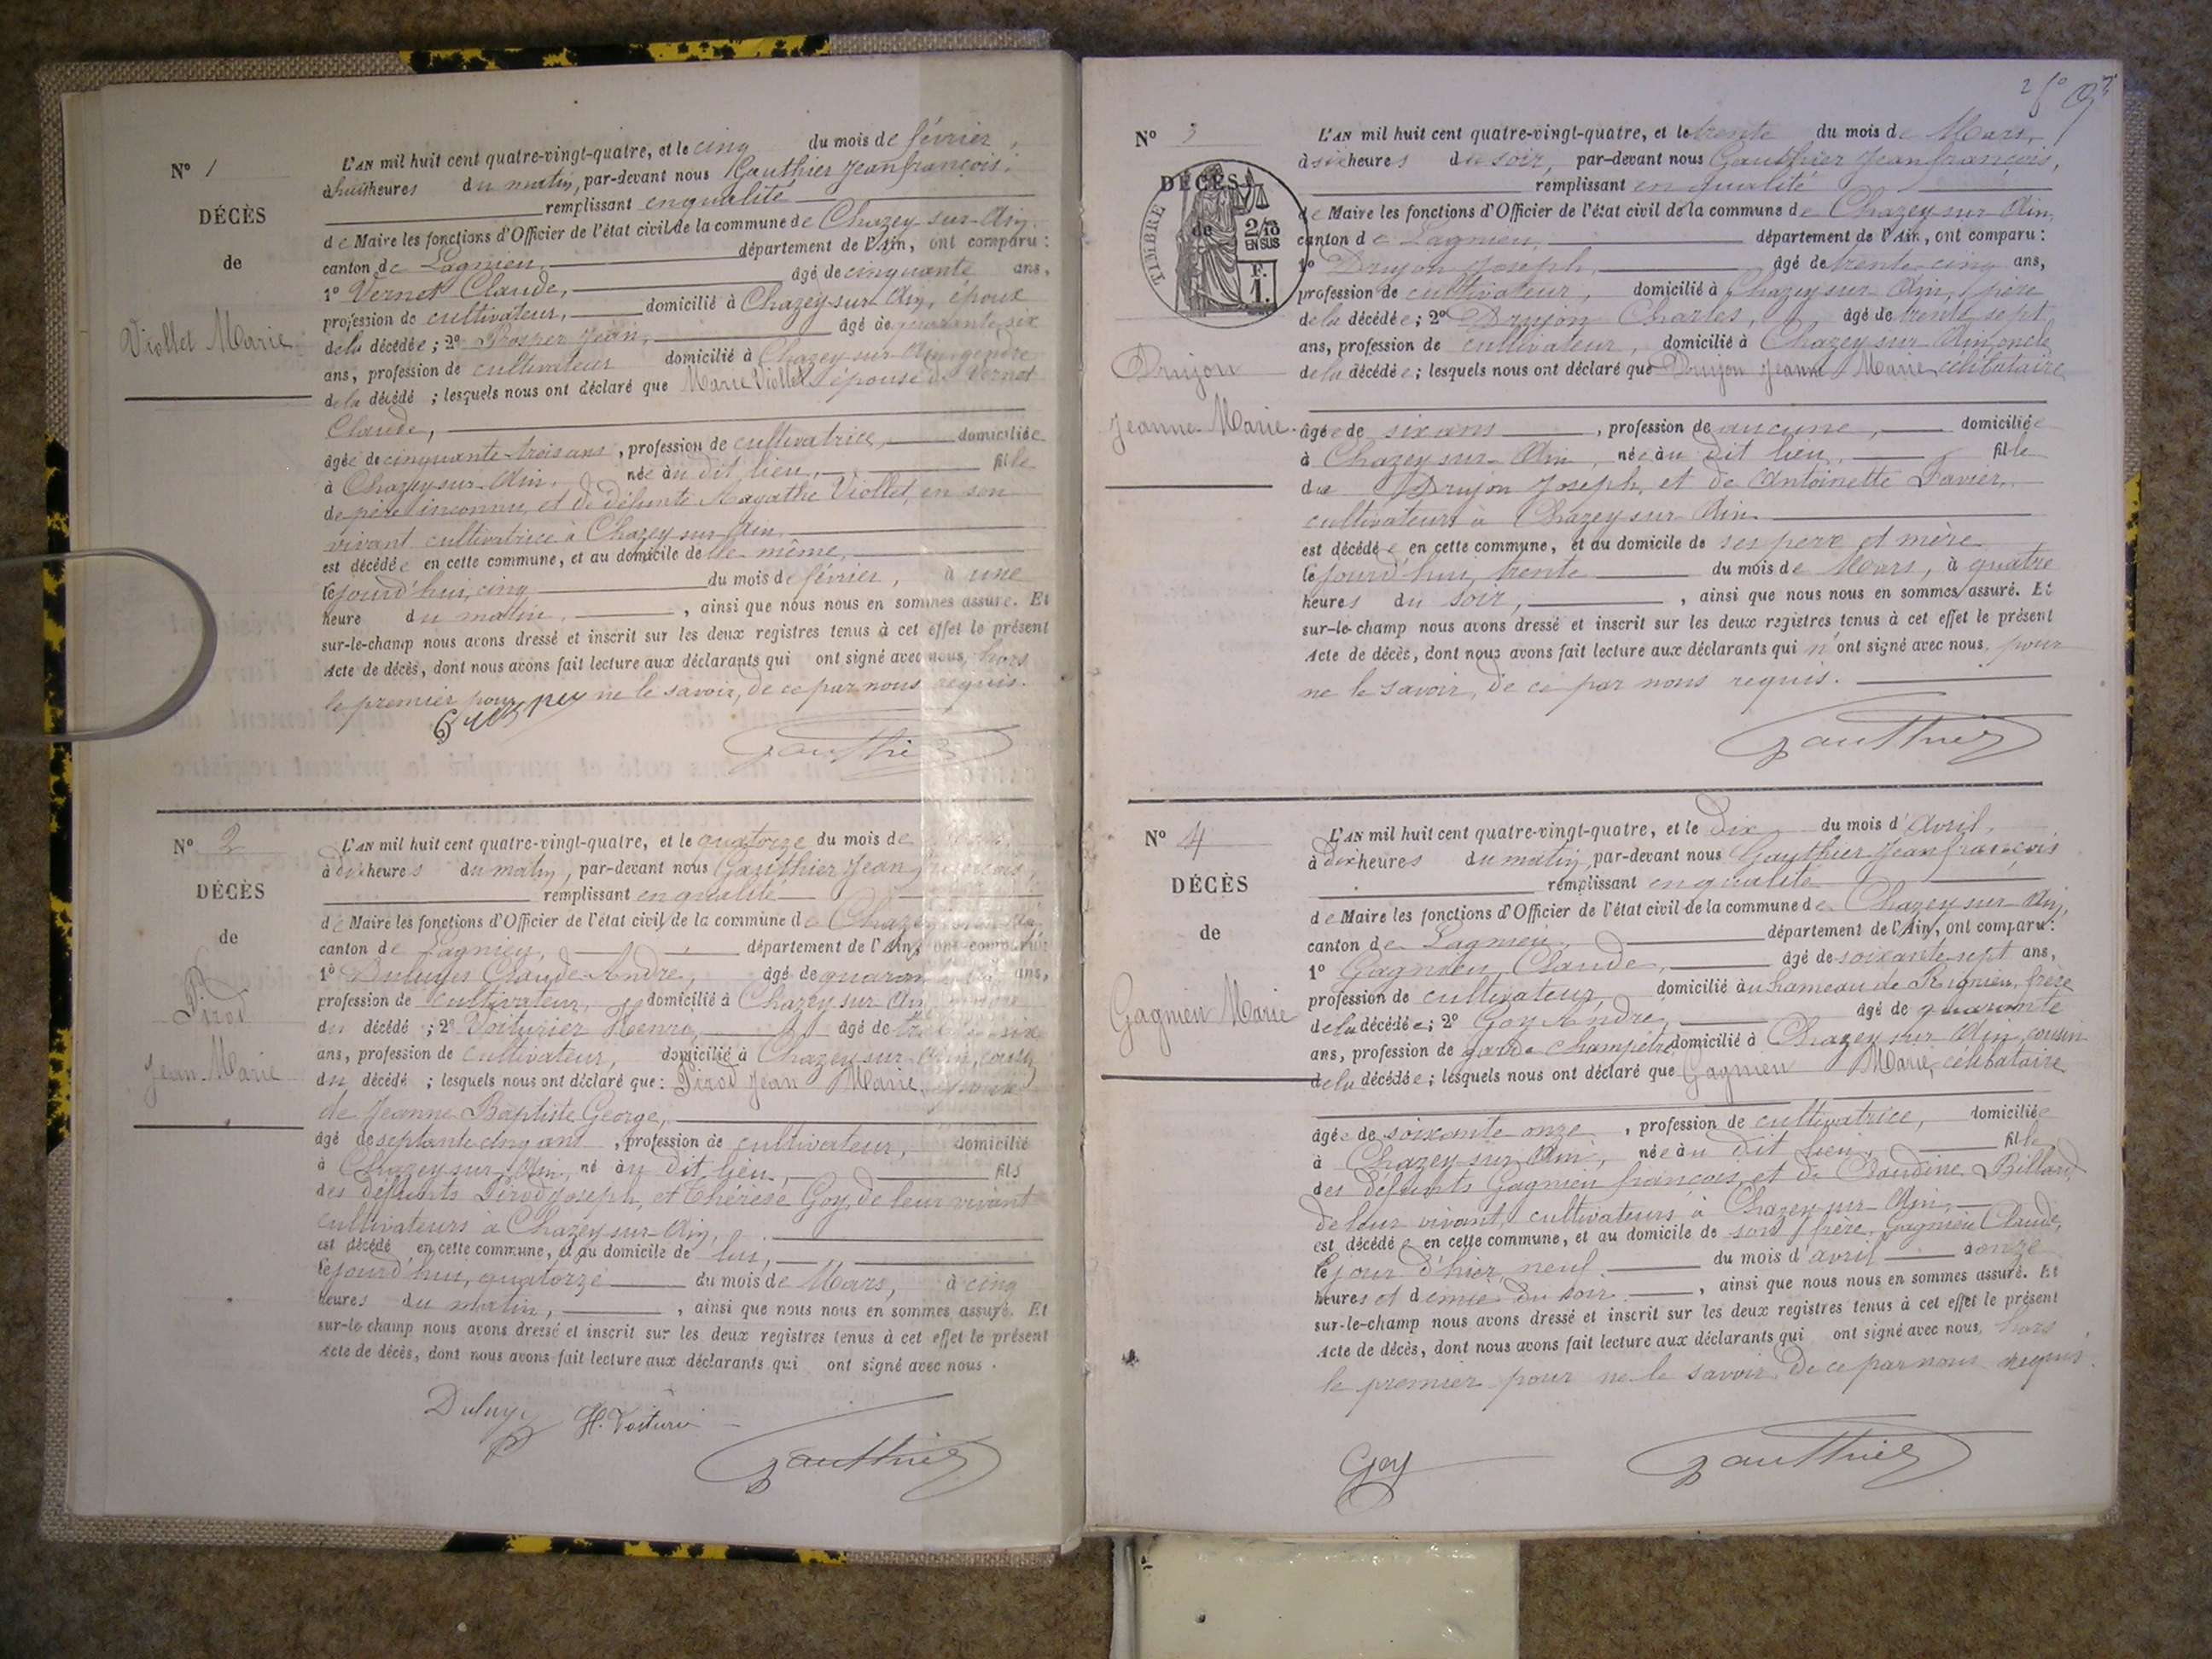 N° 1
DÉCÈS
de
Viollet Marie
L'AN mil huit cent quatre-vingt-quatre, et le cinq du mois de février,
à huit heures du matin, par-devant nous Gauthier Jean françois,
remplissant en qualité
de Maire les fonctions d'Officier de l'état civil de la commune de Chazey-sur-Ain,
canton de Lagnieu département de l'Ain, ont comparu :
1° Vernet Claude, âgé de cinquante ans,
profession de cultivateur, domicilié à Chazey-sur-Ain, époux
de la décédée ; 2° Prosper Jean, âgé de quarante six
ans, profession de cultivateur domicilié à Chazey-sur-Ain, gendre
de la décédé ; lesquels nous ont déclaré que Marie Viollet épouse de Vernet
Claude,
âgée de cinquante-trois ans, profession de cultivatrice, domiciliée
à Chazey-sur-Ain, née au dit lieu, fille
de père inconnu, et de défunte Agathe Viollet, en son
vivant cultivatrice à Chazey-sur-Ain
est décédée en cette commune, et au domicile de elle-même,
le jourd'hui, cinq du mois de février, à une
heure du matin, ainsi que nous nous en sommes assuré. Et
sur-le-champ nous avons dressé et inscrit sur les deux registres tenus à cet effet le présent
Acte de décès, dont nous avons fait lecture aux déclarants qui ont signé avec nous, hors
le premier pour ne le savoir, de ce par nous requis.
Gauthier
N° 2
DÉCÈS
de
Pirod
Jean-Marie
L'AN mil huit cent quatre-vingt-quatre, et le quatorze du mois de
à dix heures du matin, par-devant nous Gauthier Jean françois,
remplissant en qualité
de Maire les fonctions d'Officier de l'état civil de la commune de Chazey-sur-Ain,
canton de Lagnieu, département de l'Ain, ont comparu :
1° Claude-André, âgé de ans,
profession de cultivateur, domicilié à Chazey-sur-Ain
du décédé ; 2° Voiturier Henri, âgé de trente six
ans, profession de cultivateur, domicilié à Chazey-sur-Ain, cousin
du décédé ; lesquels nous ont déclaré que : Pirod Jean Marie,
de Jeanne Baptiste George,
âgé de septante cinq ans, profession de cultivateur, domicilié
à Chazey-sur-Ain, né au dit lieu, fils
des défunts Pirod Joseph, et Thérèse Goy, de leur vivant
cultivateurs à Chazey-sur-Ain,
est décédé en cette commune, et au domicile de lui,
le jourd'hui, quatorze du mois de Mars, à cinq
heures du matin, ainsi que nous nous en sommes assuré. Et
sur-le-champ nous avons dressé et inscrit sur les deux registres tenus à cet effet le présent
Acte de décès, dont nous avons fait lecture aux déclarants qui ont signé avec nous.
H. Voiturier
Gauthier
N° 3
DÉCÈS
de
TIMBRE
2/10
EN SUS
F.
1.
Drujon
Jeanne-Marie
L'AN mil huit cent quatre-vingt-quatre, et le trente du mois de Mars,
à six heures du soir, par-devant nous Gauthier Jean françois,
remplissant en qualité
de Maire les fonctions d'Officier de l'état civil de la commune de Chazey-sur-Ain,
canton de Lagnieu, département de l'Ain, ont comparu :
1° Drujon Joseph, âgé de trente-cinq ans,
profession de cultivateur, domicilié à Chazey-sur-Ain, père
de la décédée ; 2° Drujon Charles, âgé de trente sept
ans, profession de cultivateur, domicilié à Chazey-sur-Ain, oncle
de la décédée ; lesquels nous ont déclaré que Drujon Jeanne Marie, célibataire
âgée de six ans, profession de aucune, domiciliée
à Chazey-sur-Ain, née au dit lieu, fille
de Drujon Joseph, et de Antoinette Favier,
cultivateurs à Chazey-sur-Ain.
est décédée en cette commune, et au domicile de ses père et mère
le jourd'hui, trente du mois de Mars, à quatre
heures du soir, ainsi que nous nous en sommes assuré. Et
sur-le-champ nous avons dressé et inscrit sur les deux registres tenus à cet effet le présent
Acte de décès, dont nous avons fait lecture aux déclarants qui n'ont signé avec nous, pour
ne le savoir, de ce par nous requis.
Gauthier
N° 4
DÉCÈS
de
Gagnieu Marie
L'AN mil huit cent quatre-vingt-quatre, et le dix du mois d'Avril,
à dix heures du matin, par-devant nous Gauthier Jean françois
remplissant en qualité
de Maire les fonctions d'Officier de l'état civil de la commune de Chazey-sur-Ain,
canton de Lagnieu, département de l'Ain, ont comparu :
1° Gagnieu Claude, âgé de soixante sept ans,
profession de cultivateur domicilié au hameau de Rignieu, frère
de la décédée ; 2° Goy André, âgé de quarante
ans, profession de garde champêtre domicilié à Chazey-sur-Ain, cousin
de la décédée ; lesquels nous ont déclaré que Gagnieu Marie, célibataire
âgée de soixante onze, profession de cultivatrice, domiciliée
à Chazey-sur-Ain, née au dit lieu, fille
des défunts Gagnieu françois, et de Claudine Billard,
de leur vivant, cultivateurs à Chazey-sur-Ain,
est décédée en cette commune, et au domicile de son frère, Gagnieu Claude,
le jour d'hier neuf du mois d'avril à onze
heures et demie du soir, ainsi que nous nous en sommes assuré. Et
sur-le-champ nous avons dressé et inscrit sur les deux registres tenus à cet effet le présent
Acte de décès, dont nous avons fait lecture aux déclarants qui ont signé avec nous, hors
le premier pour ne le savoir, de ce par nous requis.
Goy
Gauthier